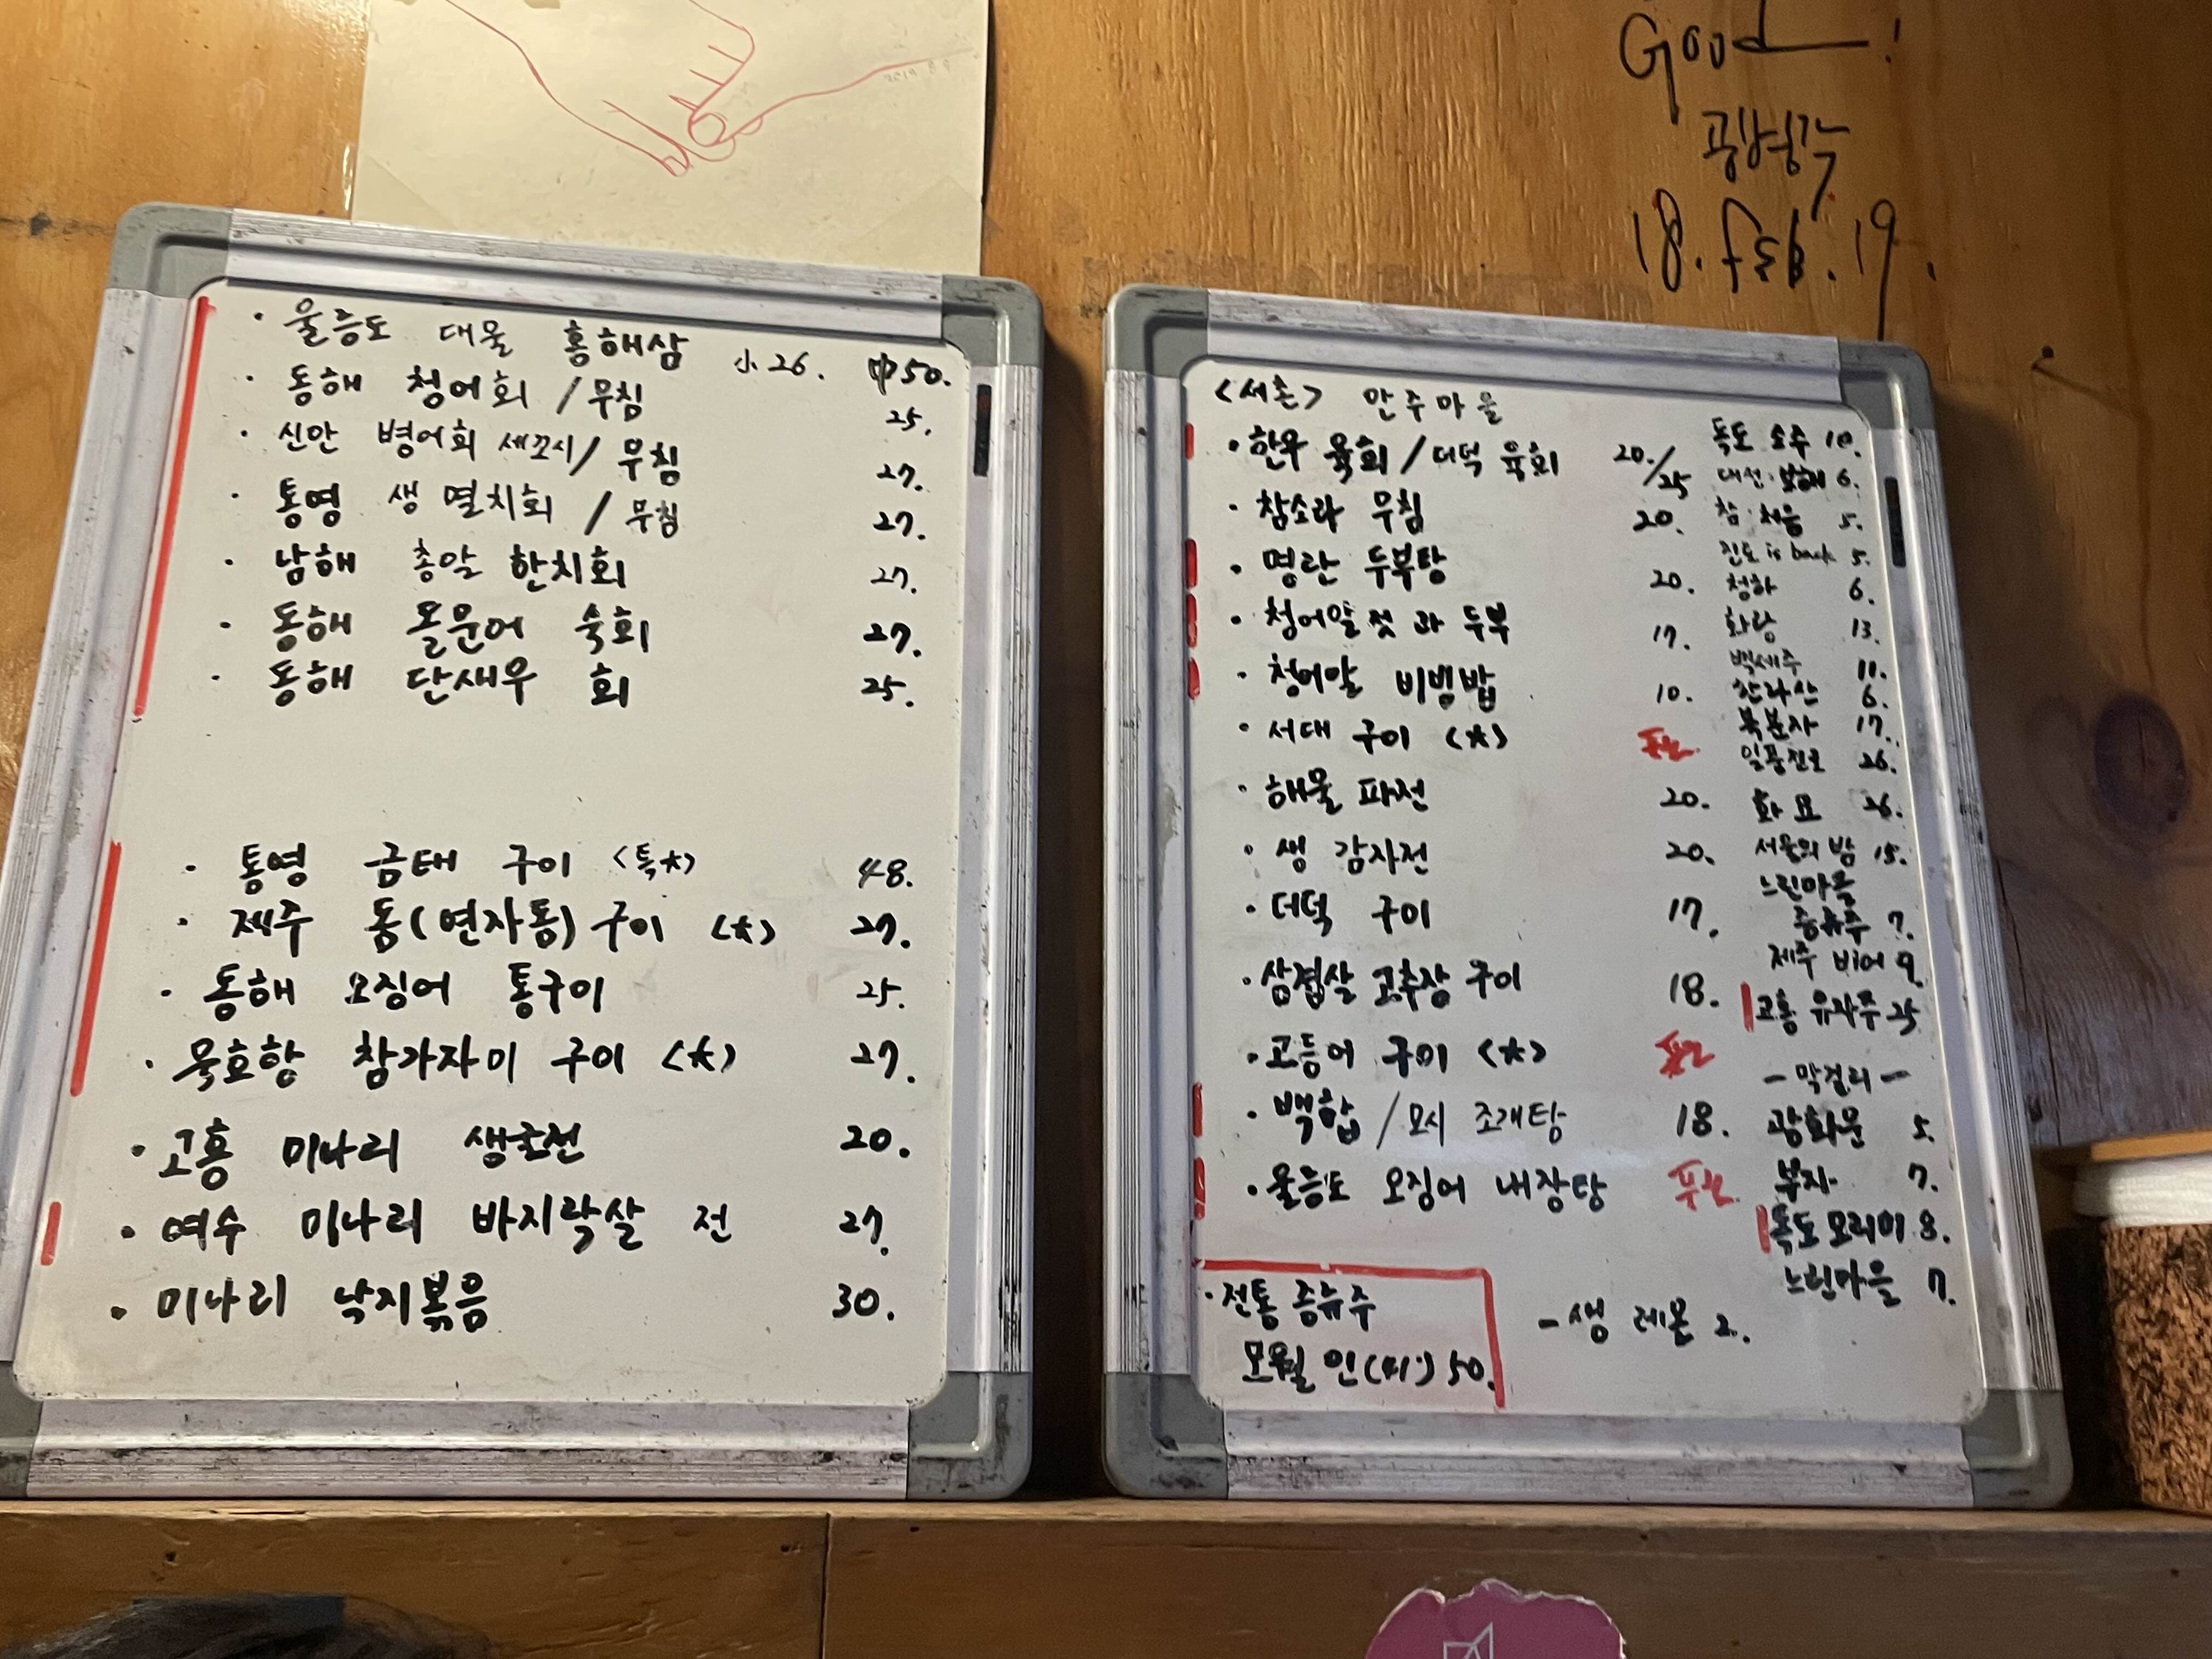 Good !
18. Feb. 19.
· 울릉도 대물 홍해삼 小 26. 中 50.
· 동해 청어회 / 무침 25.
· 신안 병어회 세꼬시 / 무침 27.
· 통영 생 멸치회 / 무침 27.
· 남해 총알 한치회 27.
· 동해 돌문어 숙회 27.
· 동해 단새우 회 25.
· 통영 금태 구이 <특大> 48.
· 제주 돔(연자돔) 구이 <大> 27.
· 동해 오징어 통구이 25.
· 묵호항 참가자미 구이 <大> 27.
· 고흥 미나리 생굴전 20.
· 여수 미나리 바지락살 전 27.
· 미나리 낙지볶음 30.
<서촌> 안주마을
· 한우 육회 / 더덕 육회 20. / 25
· 참소라 무침 20.
· 명란 두부탕 20.
· 청어알젓과 두부 17.
· 청어알 비빔밥 10.
· 서대 구이 <大> 품절
· 해물 파전 20.
· 생 감자전 20.
· 더덕 구이 17.
· 삼겹살 고추장 구이 18.
· 고등어 구이 <大> 품절
· 백합 / 모시 조개탕 18.
· 울릉도 오징어 내장탕 품절
· 전통 증류주
모월 인(41°) 50.
- 생 레몬 2.
독도 소주 10.
대선·보해 6.
참·처음 5.
진로 is back 5.
청하 6.
화랑 13.
백세주 11.
한라산 6.
복분자 17.
일품진로 26.
화요 26.
서울의 밤 15.
느린마을
증류주 7.
제주 비어 9.
고흥 유자주 25
- 막걸리 -
광화문 5.
부자 7.
독도 모리미 8.
느린마을 7.